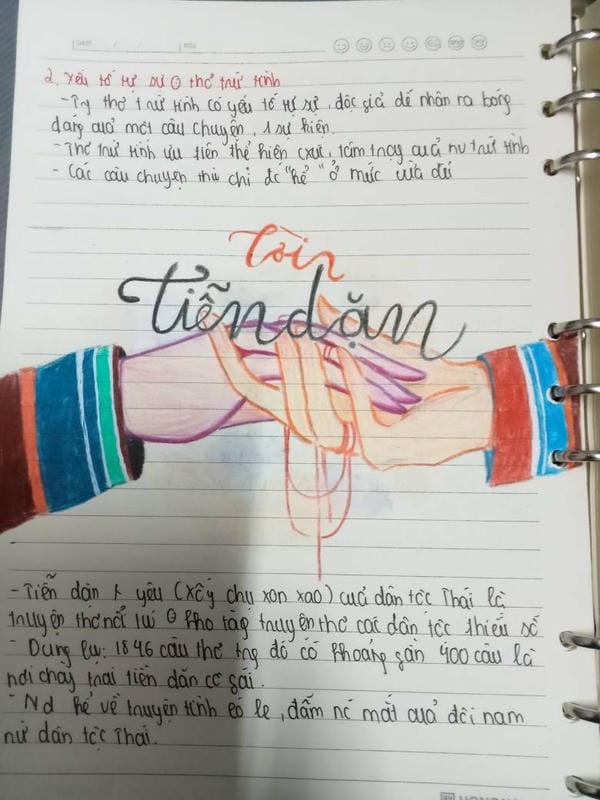 2. Yếu tố tự sự ⊙ thơ trữ tình
- Trg thơ trữ tình có yếu tố tự sự, độc giả dễ nhân ra bóng
dáng cuả một câu chuyện, 1 sự kiện.
- Thơ trữ tình ưu tiên thể hiện cxuc, tâm trạng cuả nv trữ tình
- Các câu chuyện thú chỉ đc "kể" ở mức vừa đủ
Lời
tiễn dặn
- Tiễn dặn ng yêu (Xống chụ xon xao) cuả dân tộc Thái là
truyện thơ nổi ⊙ kho tàg truyện thơ các dân tộc thiểu số
- Dung lg: 1846 câu thơ trg đó có khoảng gần 400 câu là
nơi chàng trai tiễn dặn cô gái.
- Nd kể về truyện tình éo le, đẫm nc mắt cuả đôi nam
nữ dân tộc Thái.